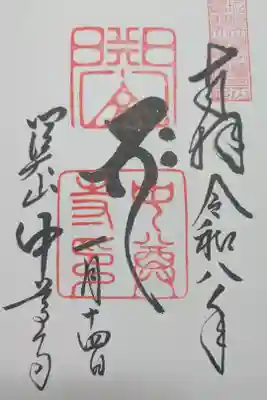 奉拝 令和八年
中尊寺印
一月十四日
関山 中尊寺